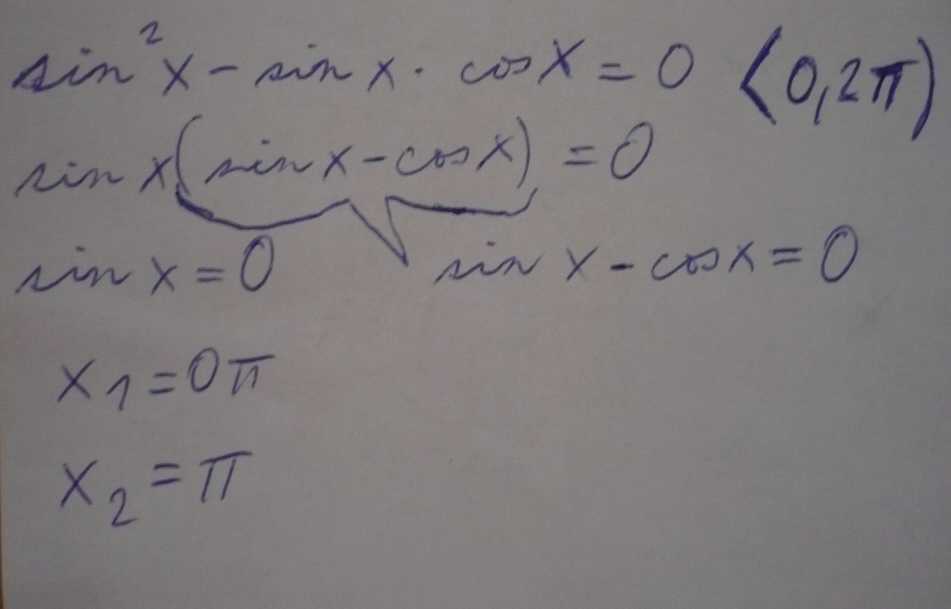 sin²x - sin x · cos x = 0 ⟨0,2π)
sin x(sin x - cos x) = 0
sin x = 0 sin x - cos x = 0
x₁ = 0π
x₂ = π